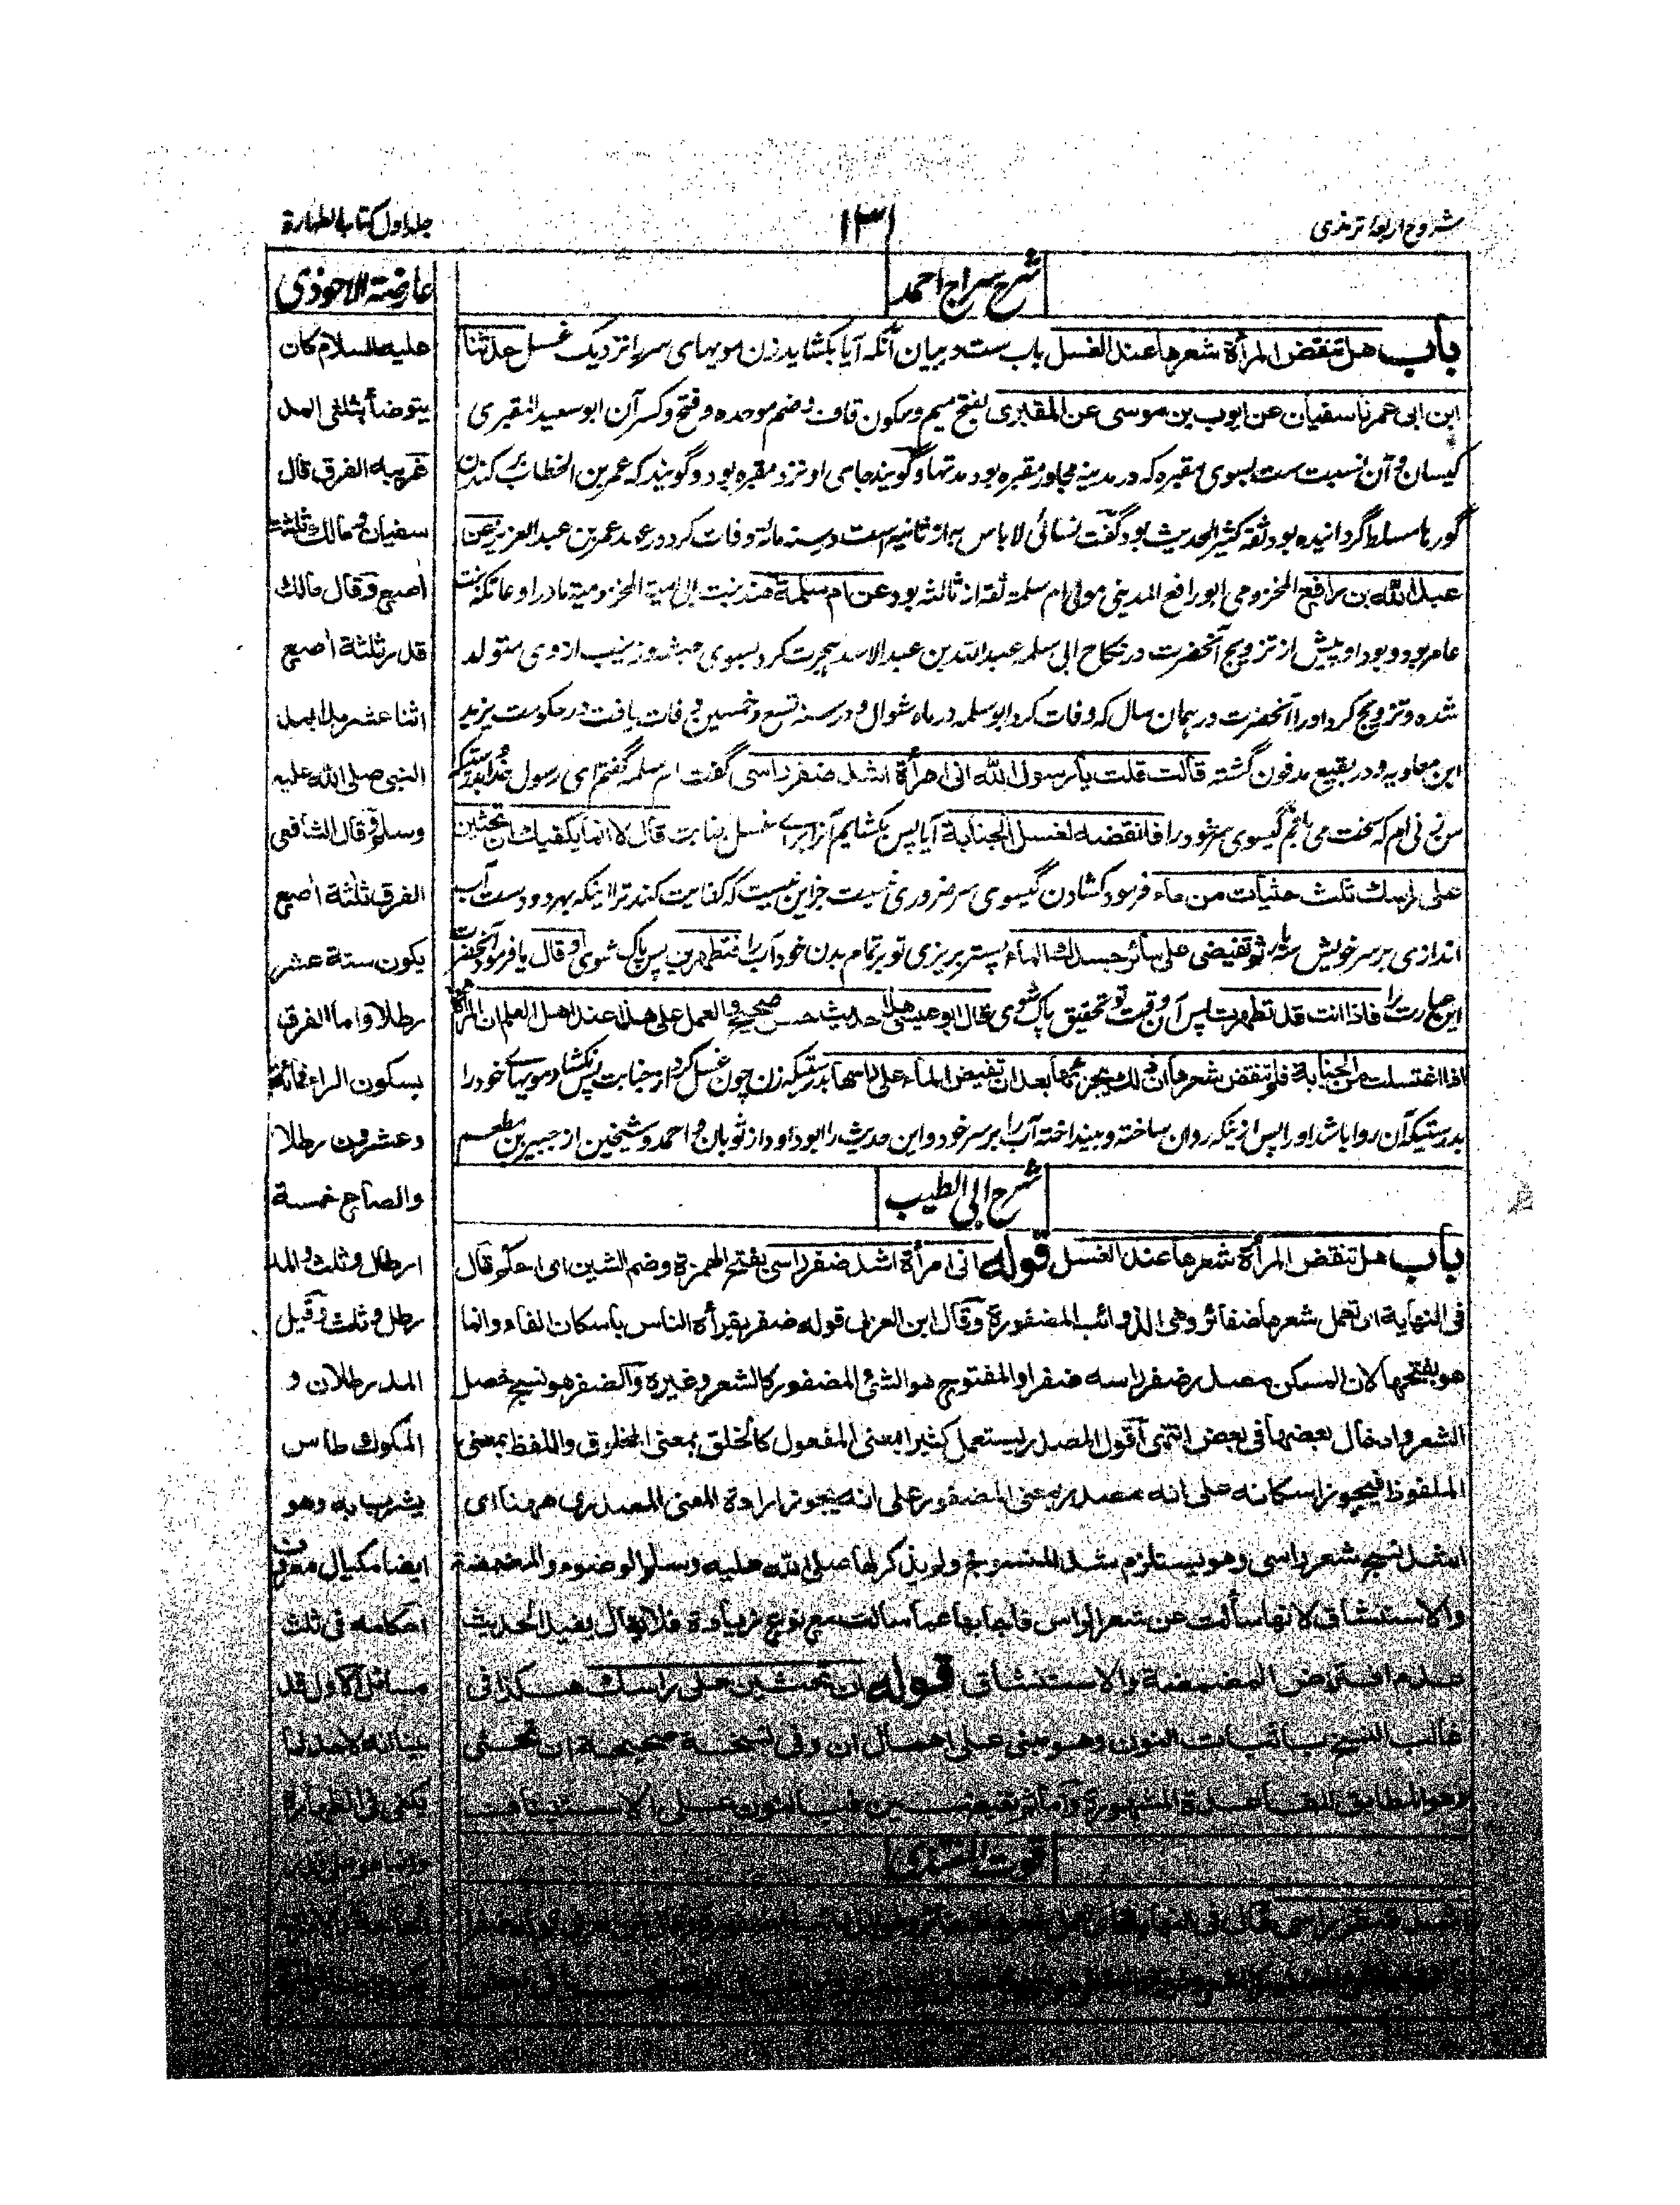 شروح اربعۂ ترمذی
١٣١
جلد اول کتاب الطهارة
شرح سراج احمد
باب هل تنقض المرأة شعرها عند الغسل باب ست در بیان آنکه آیا بکشاید زن مویهای سر را نزدیک غسل حدثنا
ابن ابی عمر نا سفیان عن ایوب بن موسی عن المقبری بفتح میم و سکون قاف و ضم موحده و فتح و کسر آن ابو سعید المقبری
کیسان و آن نسبت ست بسوی مقبره که در مدینه مجاور مقبره بود مدتها و گویند جای او نزد مقبره بود و گویند که عمر بن الخطاب بر کندن
گورها مسلط گردانیده بود ثقه کثیر الحدیث بود گفت نسائی لا باس به از ثانیه است در سنه مائة وفات کرد در عهد عمر بن عبد العزیز عن
عبد الله بن رافع المخزومی ابو رافع المدینی مولی ام سلمة ثقه از ثالثه بود عن ام سلمة هند بنت ابی امیة المخزومیة مادر او عاتکه بنت
عامر بود و بود او پیش از تزویج آنحضرت در نکاح ابی سلمه عبد الله بن عبد الاسد هجرت کرد بسوی حبشه و زینب از وی متولد
شده و تزویج کرد او را آنحضرت در همان سال که وفات کرد ابو سلمه در ماه شوال و در سنه تسع و خمسین وفات یافت در حکومت یزید
ابن معاویه و در بقیع مدفون گشته قالت قلت یا رسول الله انی امرأة اشد ضفر راسی گفت ام سلمه گفتم ای رسول خدا بدرستیکه
من زنی ام که سخت می بافم گیسوی سر خود را فانقضه لغسل الجنابة آیا پس بکشایم آنرا برای غسل جنابت قال لا انما یکفیك ان تحثین
علی راسك ثلث حثیات من ماء فرمود کشادن گیسوی سر ضروری نیست جز این نیست که کفایت کند ترا اینکه بهر دو دست آب
اندازی بر سر خویش سه بار ثم تفیضی علی سائر جسدك الماء پستر بریزی تو بر تمام بدن خود آب را فتطهرین پس پاک شوی او قال یا فرمود آنحضرت
این عبارت را فاذا انت قد تطهرت پس آن وقت تو تحقیق پاک شوی قال ابو عیسی هذا حدیث حسن صحیح و العمل علی هذا عند اهل العلم ان المرأة
اذا اغتسلت من الجنابة فلم تنقض شعرها ان ذلك یجزئها بعد ان تفیض الماء علی راسها بدرستیکه زن چون غسل کرد از جنابت پس نکشاد مویهای خود را
بدرستیکه آن روا باشد او را پس از اینکه روان ساخته و بینداخته آب را بر سر خود و این حدیث را ابو داود از ثوبان و احمد و شیخین از جبیر بن مطعم
شرح ابی الطیب
باب هل تنقض المرأة شعرها عند الغسل قوله انی امرأة اشد ضفر راسی بفتح الهمزة و ضم الشین ای احکم قال
فی النهایة ای تعمل شعرها ضفائر وهی الذوائب المضفورة وقال ابن العربی قوله ضفر یقرأه الناس باسکان الفاء وانما
هو بفتحها لان المسکن مصدر ضفر راسه ضفرا و المفتوح هو الشئ المضفور کالشعر وغیره والضفر هو نسج خصل
الشعر وادخال بعضها فی بعض انتهی أقول المصدر یستعمل کثیرا بمعنی المفعول کالخلق بمعنی المخلوق واللفظ بمعنی
الملفوظ فیجوز اسکانه علی انه مصدر بمعنی المضفور علی انه یجوز ارادة المعنی المصدری ههنا ای
اشد نسج شعر راسی وهو یستلزم شد المنسوج ولم یذکر لها صلی الله علیه وسلم الوضوء والمضمضة
والاستنشاق لانها سألت عن شعر الراس فاجابها عما سألت مع نوع زیادة فلا یقال یفید الحدیث
عدم افتراض المضمضة والاستنشاق قوله ان تحثین علی راسك هکذا فی
غالب النسخ باثبات النون وهو مبنی علی اهمال ان وفی نسخة صحیحة ان تحثی
وهو المطابق للقاعدة المشهورة واما تفیضین فبالنون علی الاستیناف
قوت المغتذی
عارضة الاحوذی
علیه السلام کان
یتوضأ بثلثی المد
غریبه الفرق قال
سفیان ومالك ثلثة
اصبع وقال مالك
قدر ثلثة أصبع
اثنا عشر مدا بمد
النبی صلی الله علیه
وسلم وقال الشافعی
الفرق ثلثة أصبع
یکون ستة عشر
رطلا واما الفرق
بسکون الراء فمائة
وعشرون رطلا
والصاع خمسة
ارطال وثلث والمد
رطل وثلث وقیل
المد رطلان و
المکوك طاس
یشرب به وهو
ایضا مکیال معروف
احکامه فی ثلث
مسائل الاول قد
بینا انه لا حد لما
یکفی فی الطهارة